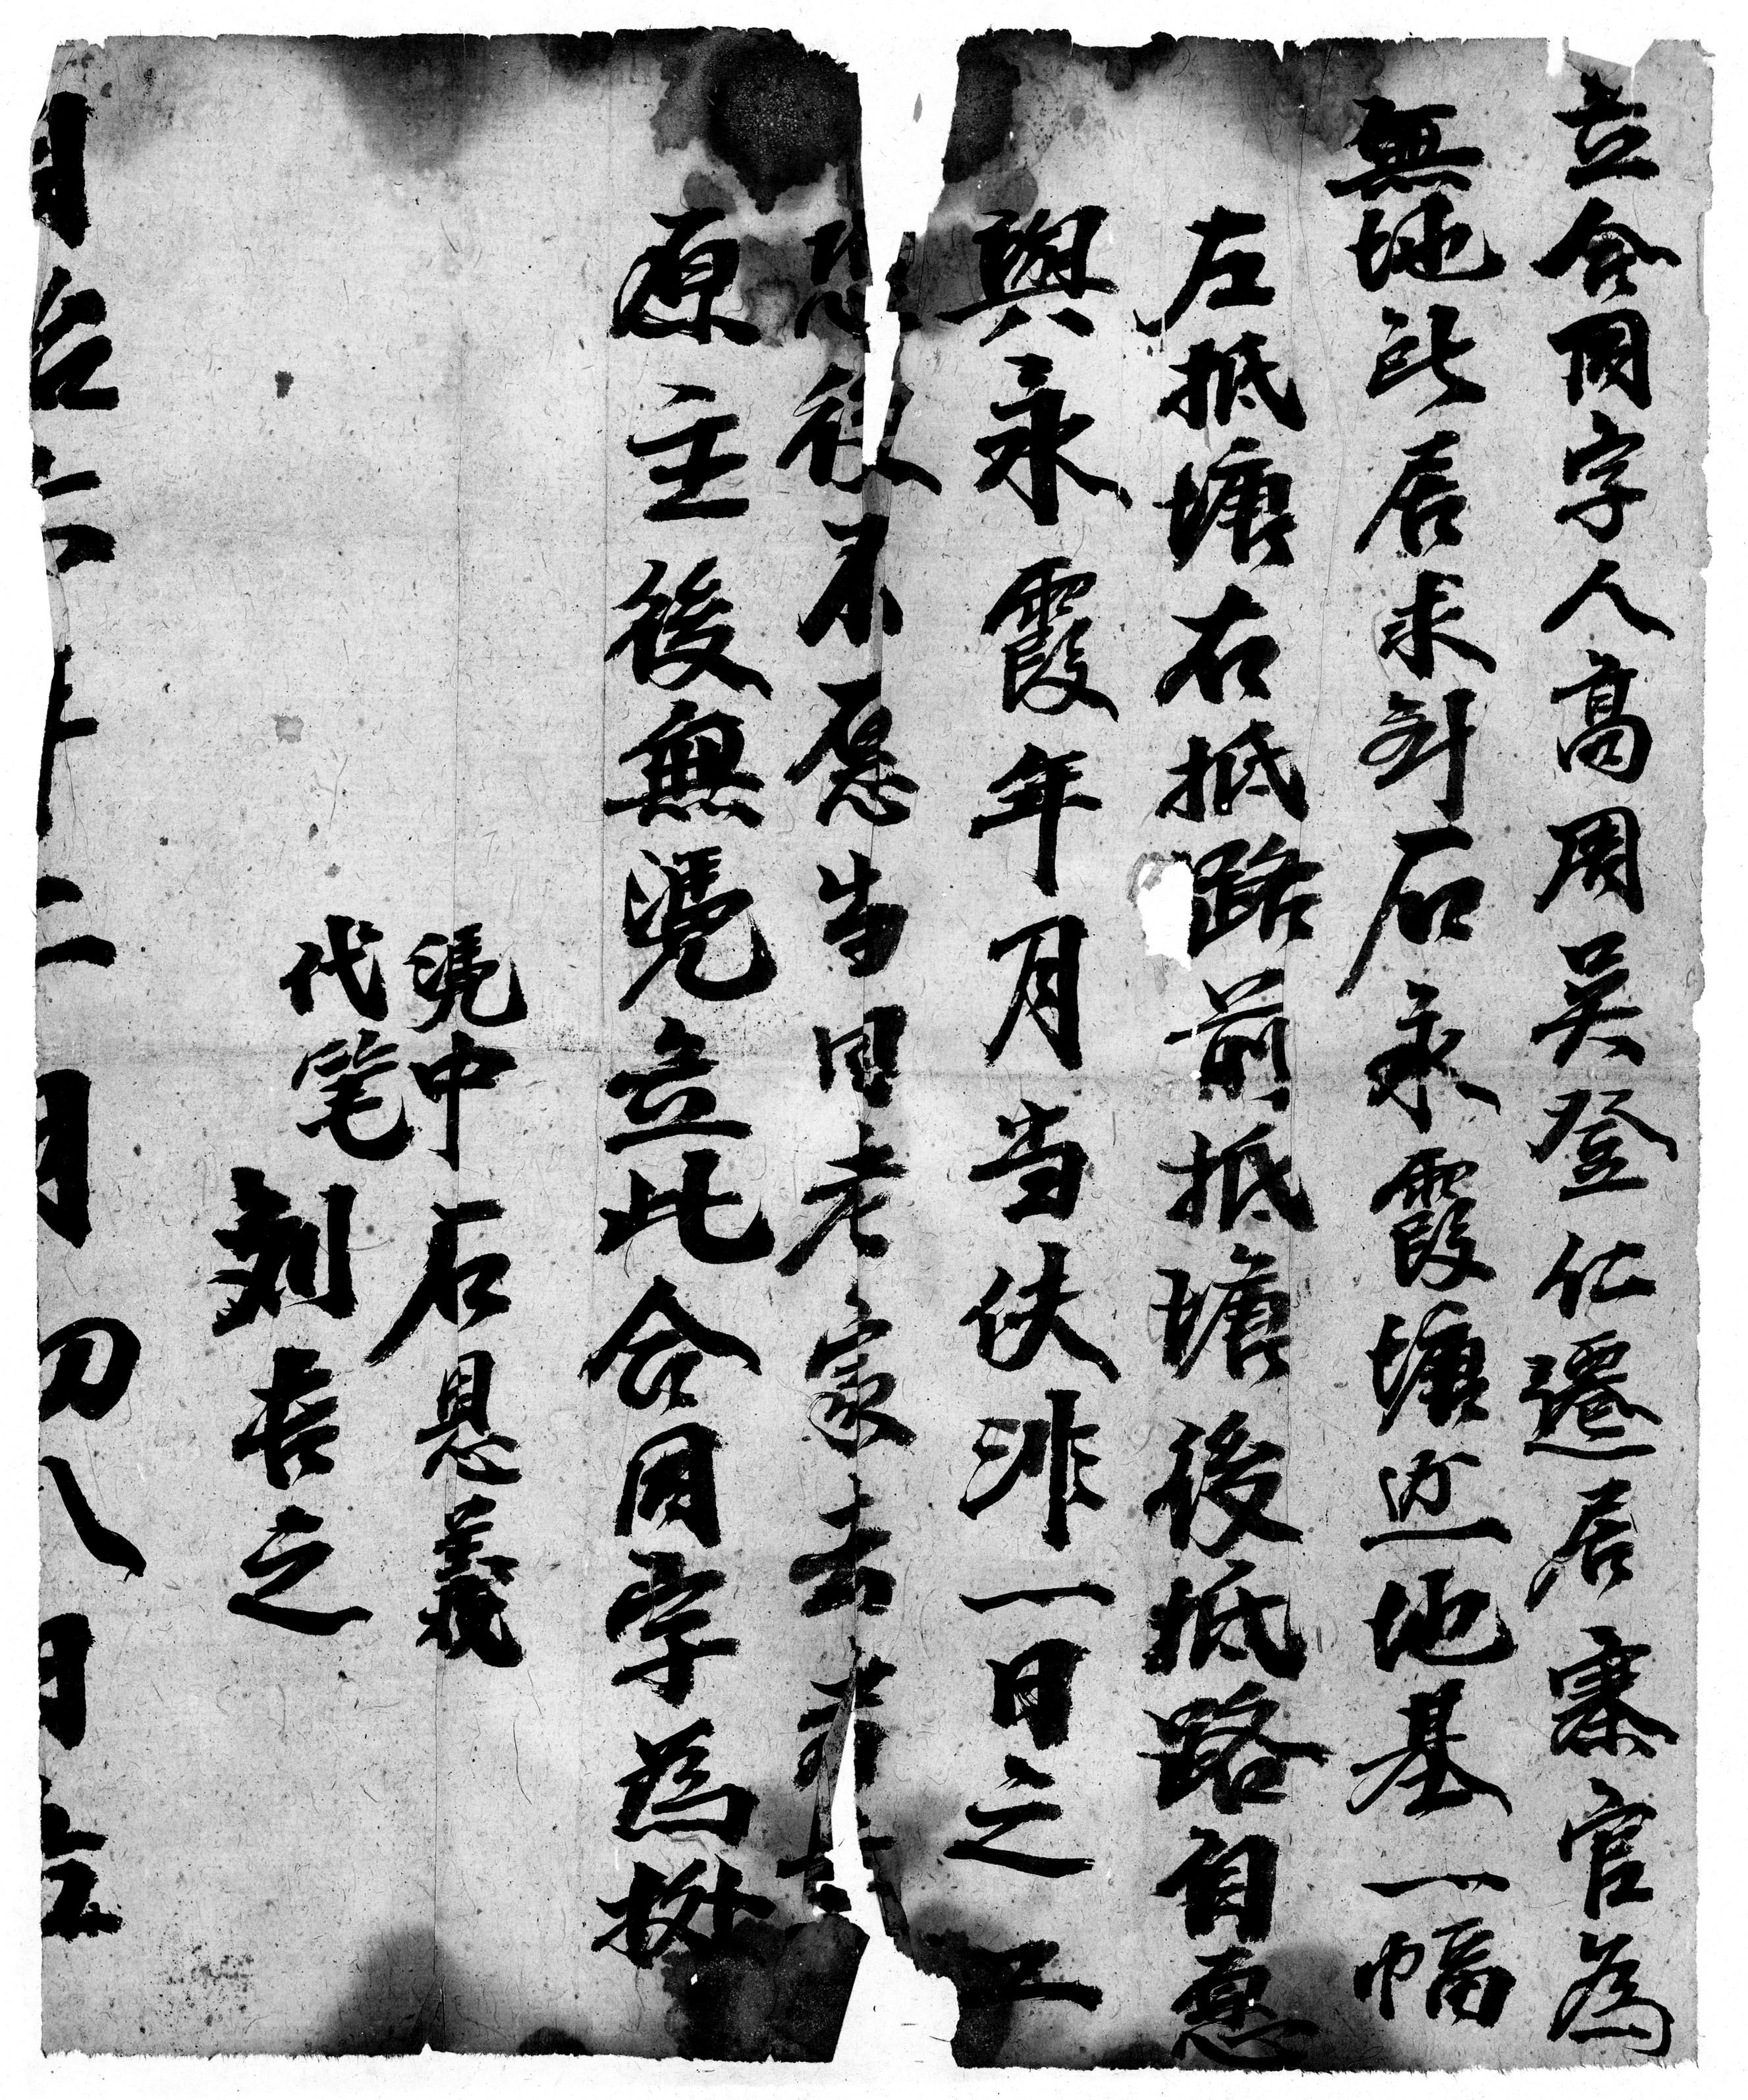 立合同字人高周吴登仁遷居寨官為
無地此居求到石永霞塘边地基一幅
左抵塘右抵路前抵塘後抵路自愿
與永霞年月当伕洋一日之工
恐後不愿当回老家去
原主後無凴立此合同字為挶
凴中石恩義
代笔刘吉之
二月初八日立